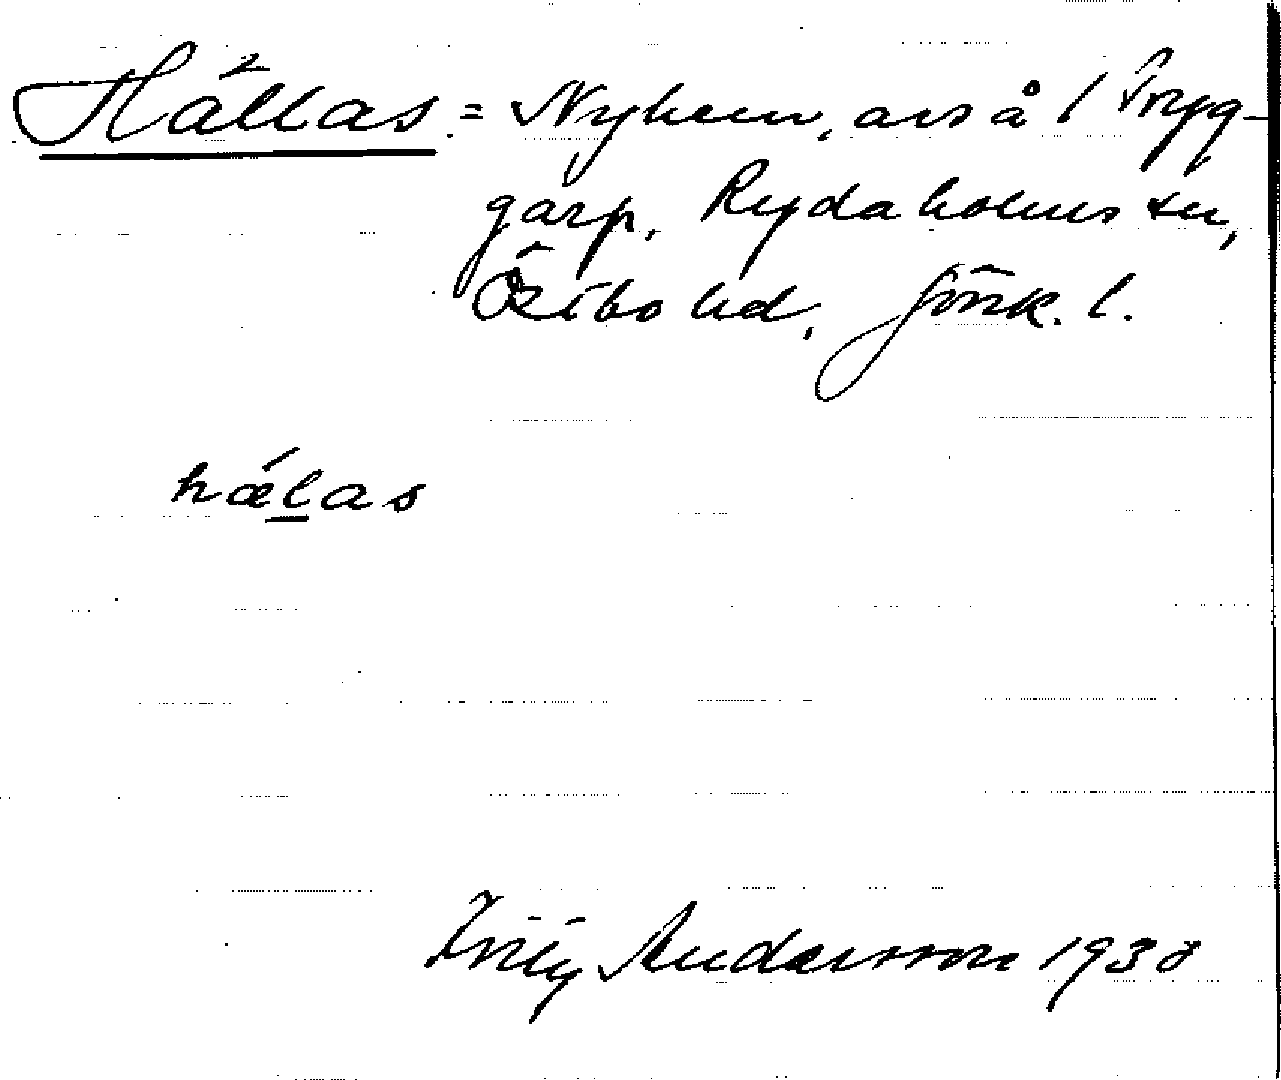 Hällas = Nyhem, avs å 1 Tryg-
garp, Rydaholms sn,
Östbo hd, Jönk. l.
hælas
Andersson 1938